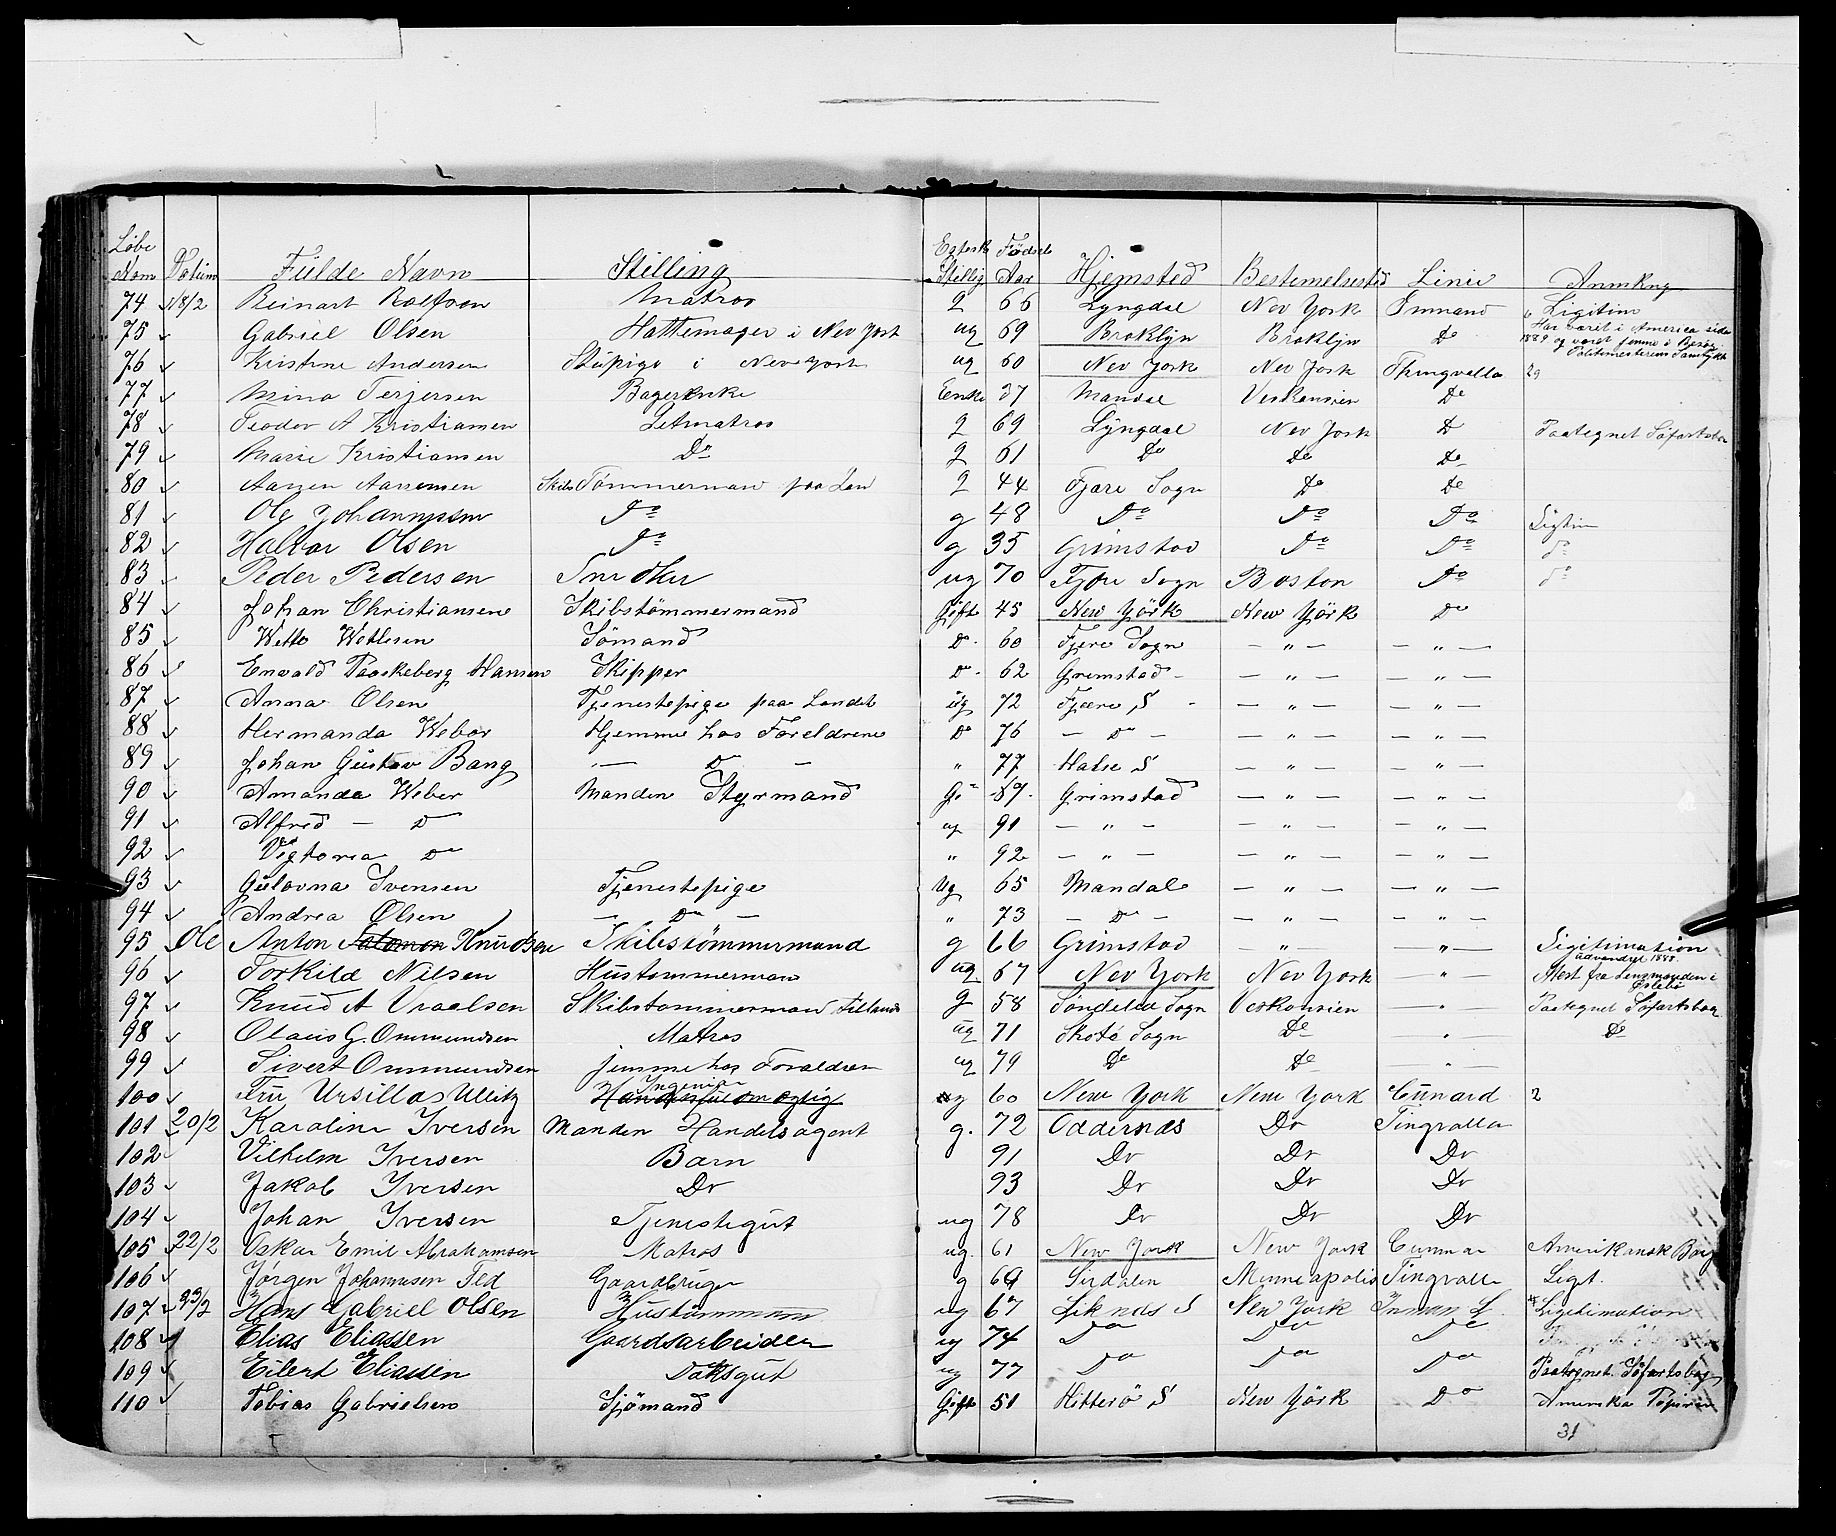 Løbe Egtesk Fødsels
Nom Datum Fulde Navn Stilling Stillig Aar Hjemsted Bestemelsested Linie Anmkng
74 18/2 Reinart Rolfsen Matros g 66 Lyngdal Nev York Inmand Ligitim
75 Gabriel Olsen Hattemager i Nev York ug 69 Broklyn Broklyn Do Har været i America siden 1889 og været jemme i Besøg Politimesterens Samtykke
76 Kristine Andersen Stupige i Nev York ug 60 Nev York Nev York Thingvalla
77 Mina Terjersen Bagerenke Enke 37 Mandal Viskonsien Do
78 Teodor A Kristiansen Letmatros g 69 Lyngdal Nev York Do Paategnet Søfartsbog
79 Marie Kristiansen Do g 61 Do Do Do
80 Aanen Aanensen Skibs Tømmerman paa Lan g 44 Fjære Sogn Do Do
81 Ole Johannessen Do g 48 Do Do Do Ligtim
82 Halvor Olsen Do g 35 Grimstad Do Do Do
83 Peder Pedersen Snedker ug 70 Fjære Sogn Boston Do Do
84 Johan Christiansen Skibstømmermand Gift 45 New Yörk New Yörk Do
85 Sømand Do 60 Fjære Sogn — " — — " —
86 Envald Paaskeberg Hansen Skipper Do 62 Grimstad — " — — " —
87 Anna Olsen Tjenestepige paa Landet ug 72 Fjære S — " — — " —
88 Hermanda Weber Hjemme hos Foreldrene Do 76 — Do — — " — — " —
89 Johan Gustav Bang " — Do — " 77 Halse S — " — — " —
90 Amanda Weber Manden Styrmand Gi 69 Grimstad — " — — " —
91 Alfred — Do ug 91 — " — — " — — " —
92 Vigtoria Do " 92 — " — — " — — " —
93 Gulovna Svensen Tjenestepige Ug 65 Mandal — " — — " —
94 Andrea Olsen — Do — " 73 — Do — — " — — " —
95 Ole Anton Salomon Knudsen Skibstömmermand g 66 Grimstad — " — — " — Ligitimation
96 Torkild Nilsen Hustømmerman ug 67 Nev York Nev York — " — Udvandret 1888. Atest fra Lensmanden i
97 Knud A Vraalsen Skibstømmerman g 58 Søndeled Sogn Viskonsien — " — Paategnet Søfartsbog
98 Olaus G. Ommundsen Matros ug 71 Skotø Sogn Do — " — Do
99 Sivert Ommundsen jemme hos Foraldren ug 79 Do Do — " —
100 Fru Ursilla Ullitz Ingeniør ug 60 New York New York Cunard 2
101 20/2 Karoline Iversen Manden Handelsagent g. 72 Oddernæs Do Tingvalla
102 Vilhelm Iversen Barn 91 Do Do Do
103 Jakob Iversen Do 93 Do Do Do
104 Johan Iversen Tjenestegut ug 78 Do Do Do
105 22/2 Oskar Emil Abrahamsen Matros ug. 61 New York New York Cunnar Amerikansk Borg
106 Jørgen Johannesen Fed Gaardbruger g 69 Sirdalen Minneapolis Tingvalla Ligt.
107 23/2 Hans Gabriel Olsen Hustømmerm ug 67 Liknæs S New York Inman L Ligitimation
108 Elias Eliassen Gaardsarbeider ug 74 Do Do Do
109 Eilert Eliassen Daksgut ug 77 Do Do Do Paategnet Søfartsbog
110 Tobias Gabrielsen Sjömand Gift 51 Hitterö S New Yörk Do Amerika Papirer
31